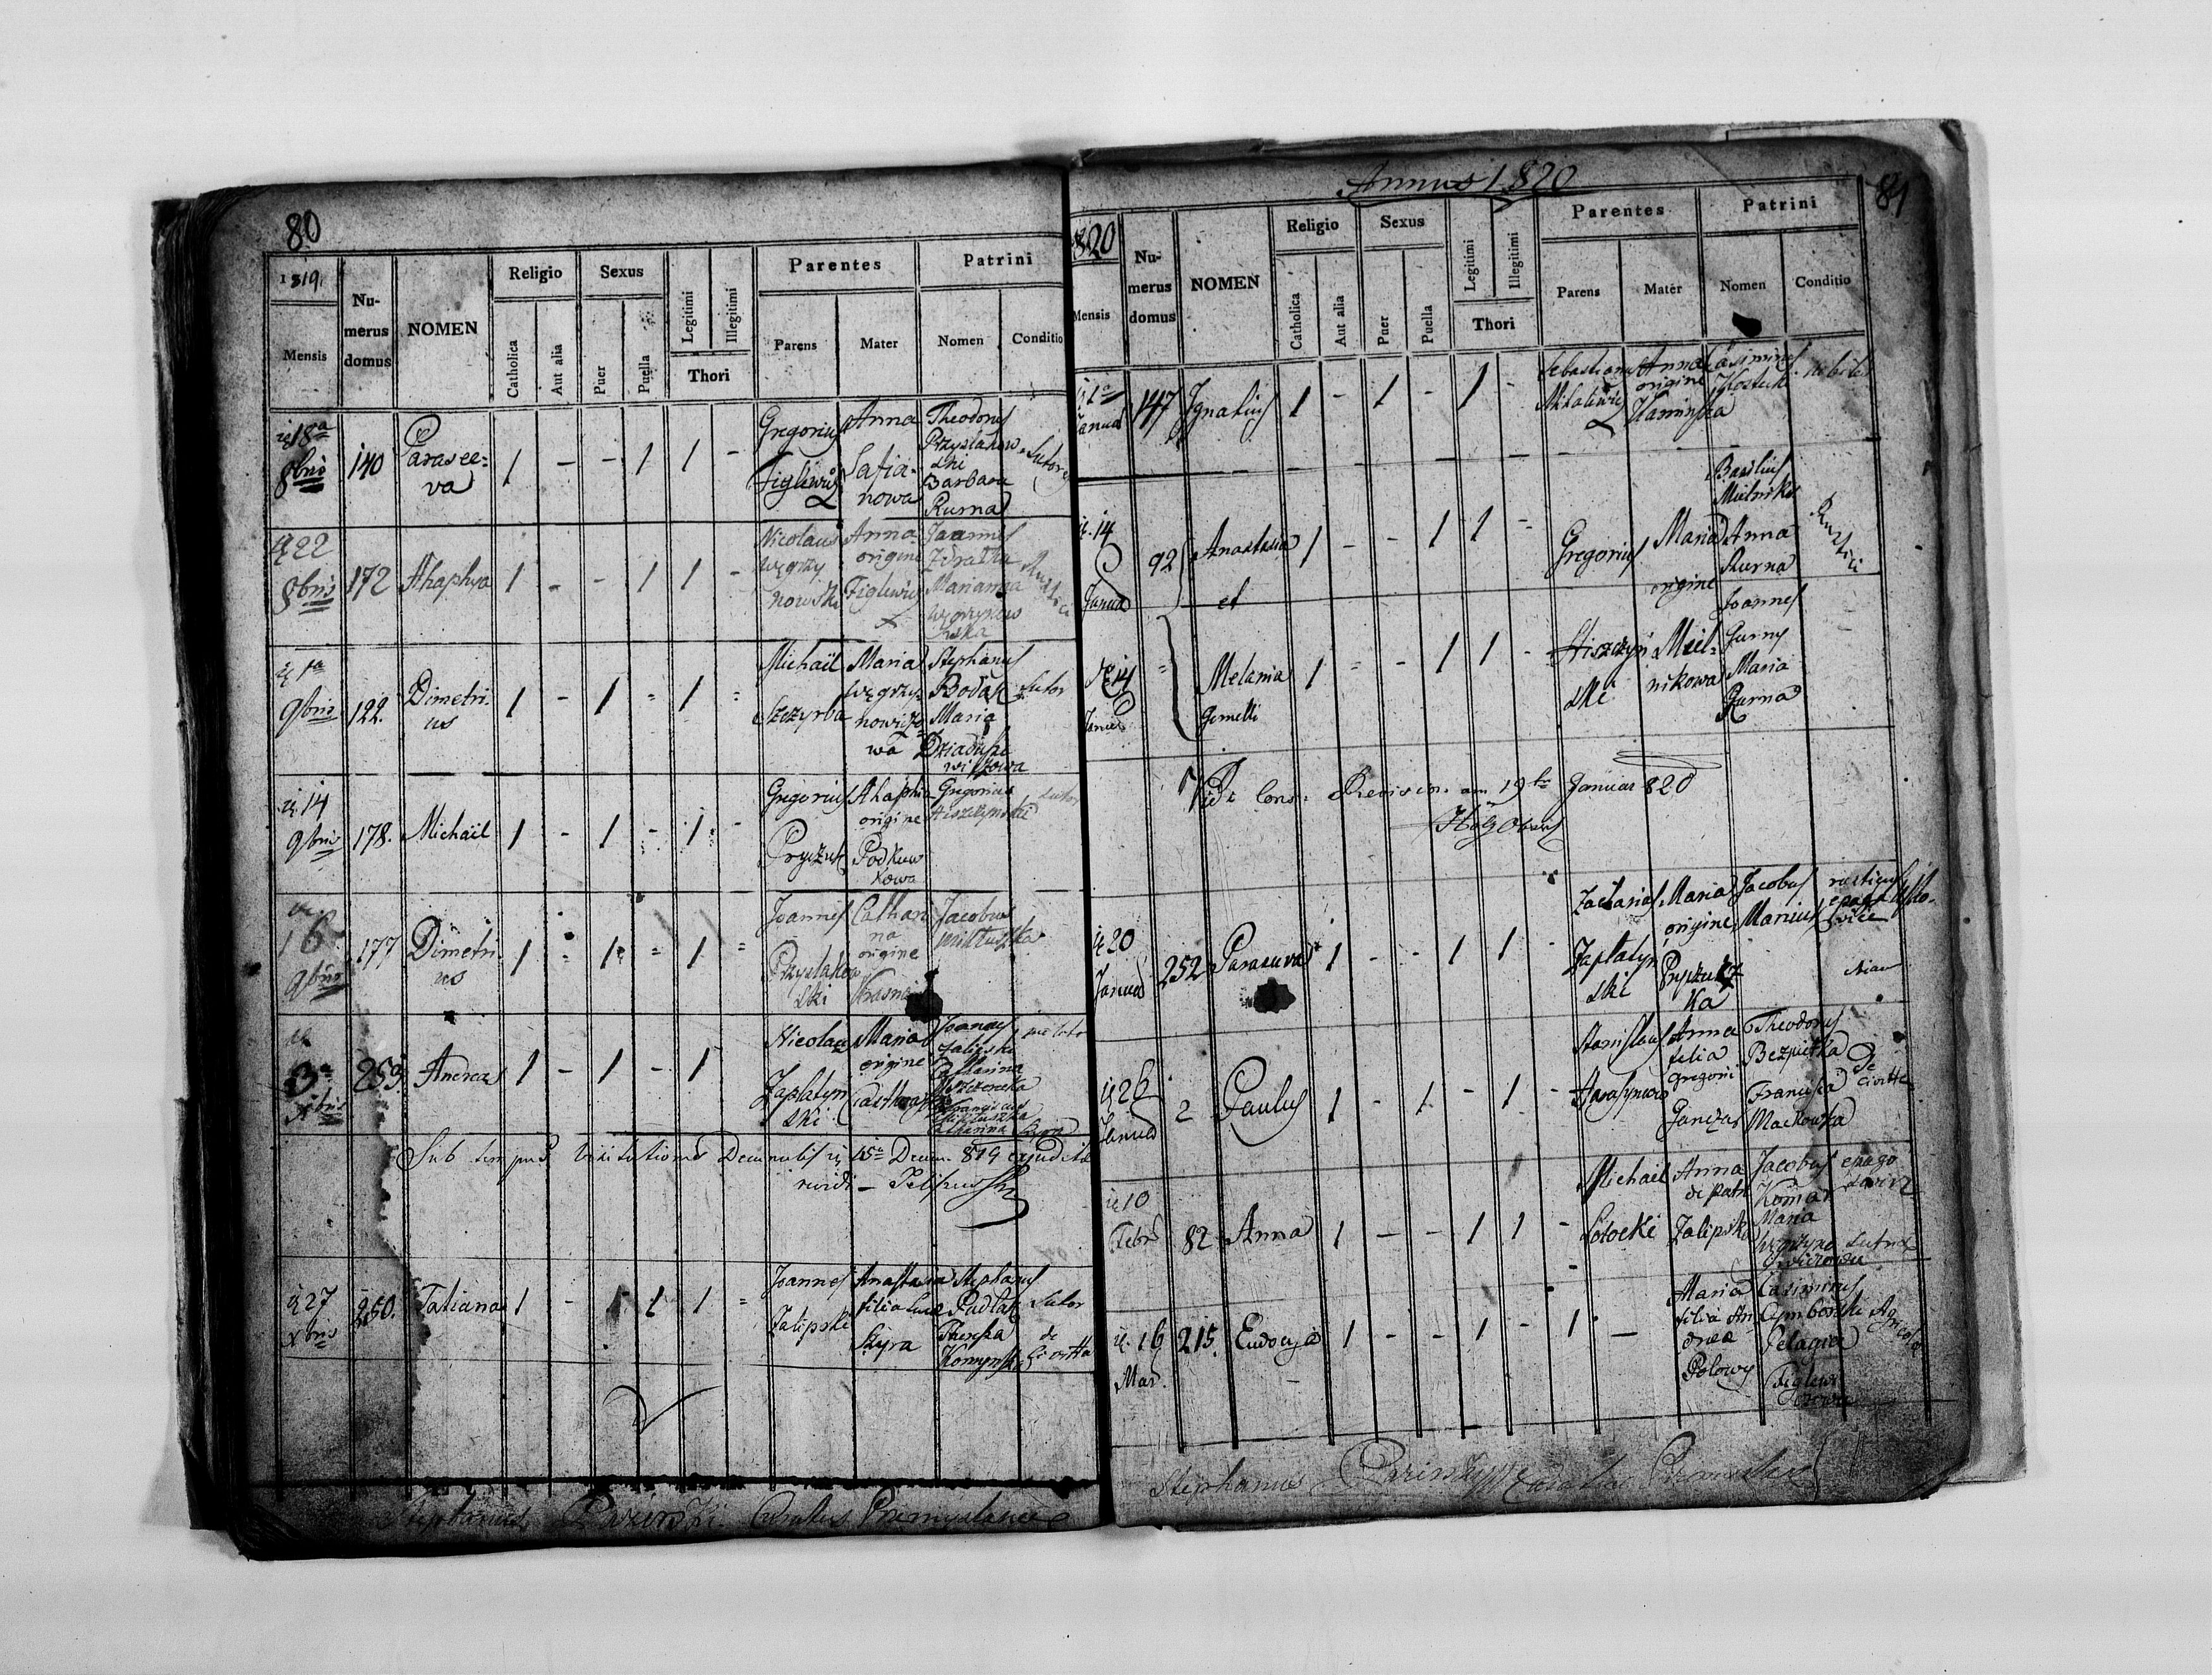 80
1819.
Mensis
Numerus domus
NOMEN
Religio
Catholica
Aut alia
Sexus
Puer
Puella
Legitimi
Illegitimi
Thori
Parentes
Parens
Mater
Patrini
Nomen
Conditio
18a
8bris
140
Parasce-
va
1 - - 1 1 -
Gregorius
Figlewicz
Anna
Safia-
nowa
Theodorus
Przyslakow
ski
Barbara
Kurna
Sutores
22
8bris
172
Ahaphya
1 - - 1 1 -
Nicolaus
Węgrzy
nowski
Anna
origine
Figlewicz
Joannes
Zdrałka
Marianna
Węgrzynow
ska
Rustici
1a
9bris
122.
Dimetri-
us
1 - 1 - 1 -
Michaël
Szczyrba
Maria
Węgrzy
nowiczo
wa
Stephanus
Bodak
Maria
Dziadusze
wiczowa
Sutor
14
9bris
178.
Michaël
1 - 1 - 1 -
Gregorius
Pryczuk
Ahaphia
origine
Podkuw
kowa
Gregorius
Hiszczynski
Sutor
16
9bris
177
Dimetri
us
1 - 1 - 1 -
Joannes
Przyslakow
ski
Cathari
na
origine
Krasna
Jacobus
Mikluszka
3a
Xbris
259
Andreas
1 - 1 - 1
Nicolaus
Zaplatyn
ski
Maria
origine
Joannes
Zalipski
Catharina
Sub tempus visitationis Decanalis 15a Decem. 819
revidi
27
Xbris
250.
Tatiana
1 - 1 1 -
Joannes
Zalipski
Anastasia
filia Luca
Szyra
Stephanus
Pudlak
Theresia
Sutor
de
Civitta
Stephanus Curatus Premyslanee
Annus 1820
81
1820
Mensis
Numerus domus
NOMEN
Religio
Catholica
Aut alia
Sexus
Puer
Puella
Legitimi
Illegitimi
Thori
Parentes
Parens
Mater
Patrini
Nomen
Conditio
1a
Januar
147
Ignatius
1 - 1 - 1 -
Sebastianus
Mikalewicz
Anna
origine
Kaminska
Casimirus
Kostecki
nobiles
14
Januar
92
Anastasia
et
1 - - 1 1 -
Gregorius
Hiszczyn
ski
Maria
origine
Miel-
nikowa
Basilius
Mielnik
Anna
Kurna
Rustici
14
Januar
Melania
Gemelli
1 - - 1 1 -
Joannes
Gurny
Maria
Gurna
Vidi Revision am 19ten Januar 820
20
Januar
252
Parasceva
1 - - 1 1 -
Zacharias
Zaplatyn
ski
Maria
origine
Pryczucz
ka
Jacobus
rusticus
26
Januar
2
Paulus
1 - 1 - 1 -
Stanislaus
Harasymow
Anna
filia
Gregorii
Ganczar
Theodorus
Bezpietka
Francisca
Mackowska
de
Civitta
10
Febr
82
Anna
1 - - 1 1 -
Michael
Solocki
Anna
de patre
Zalipsko
Jacobus
Komar
Maria
e pago
16
Mar.
215.
Eudocya
1 - - 1 - 1
-
Maria
filia An
drea
Polowy
Casimirus
Cymborski
Pelagia
Figlewi
czowa
Agricola
Stephanus